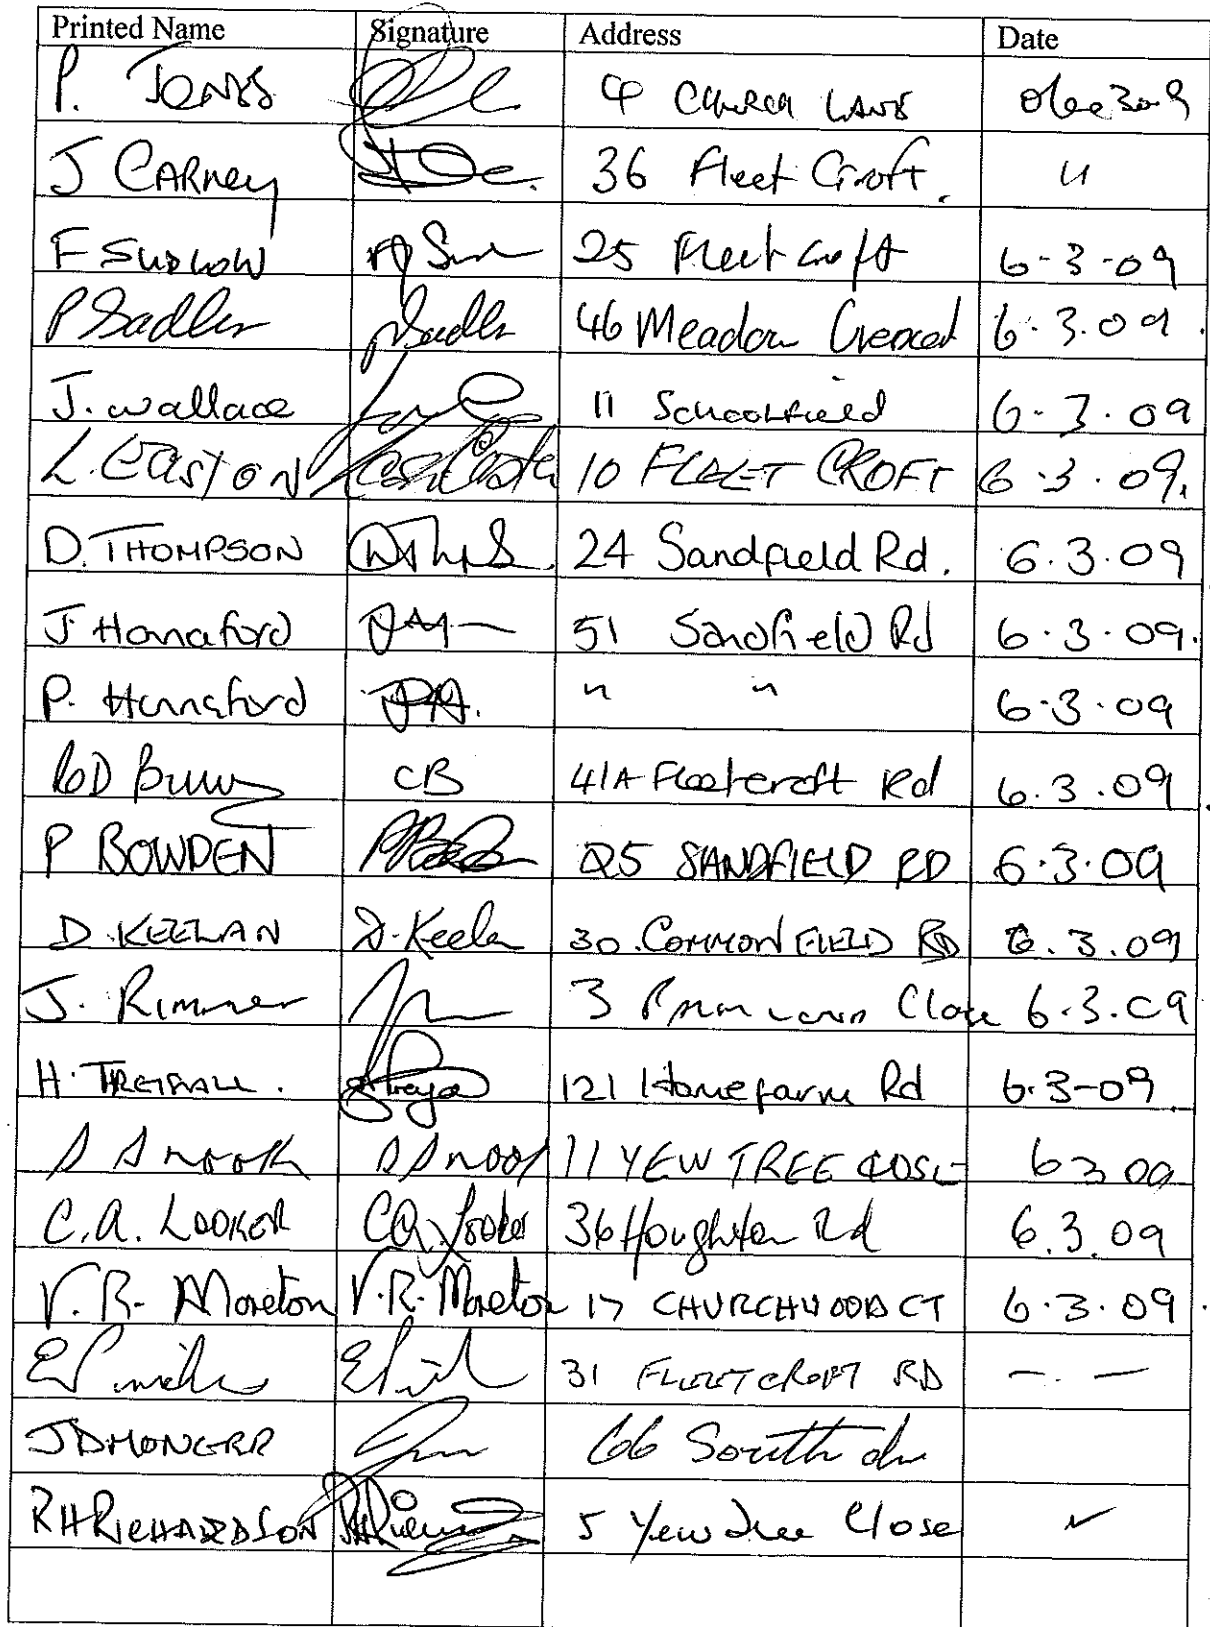 Printed Name Signature Address Date
P. JONES 4 CHURCH LANE
J CARNEY 36 Fleet Croft. "
F SUDLOW 25 Fleet Croft 6-3-09
P Sadler P Sadler 46 Meadow Crescent 6.3.09.
J. Wallace 11 Schoolfield 6.3.09
L. EASTON 10 FLEET CROFT 6.3.09.
D. THOMPSON 24 Sandfield Rd. 6.3.09
J Hannaford 51 Sandfield Rd 6.3.09.
P. Hannaford " " 6.3.09
CB 41A Fleetcroft Rd 6.3.09.
P BOWDEN 25 SANDFIELD RD 6.3.09
D. KEELAN D. Keelan 30 COMMONFIELD RD 6.3.09
J. Rimmer 3 Close 6.3.09
H. THRELFALL. 121 Homefarm Rd 6.3-09
S Snook S Snook 11 YEW TREE CLOSE 6 3 09
C.A. LOOKER C.A. Looker 36 Houghton Rd 6.3.09
V.R. Moreton V.R. Moreton 17 CHURCHWOOD CT 6.3.09.
31 FLEETCROFT RD -.-
66 South dr
RH RICHARDSON 5 Yew Tree Close